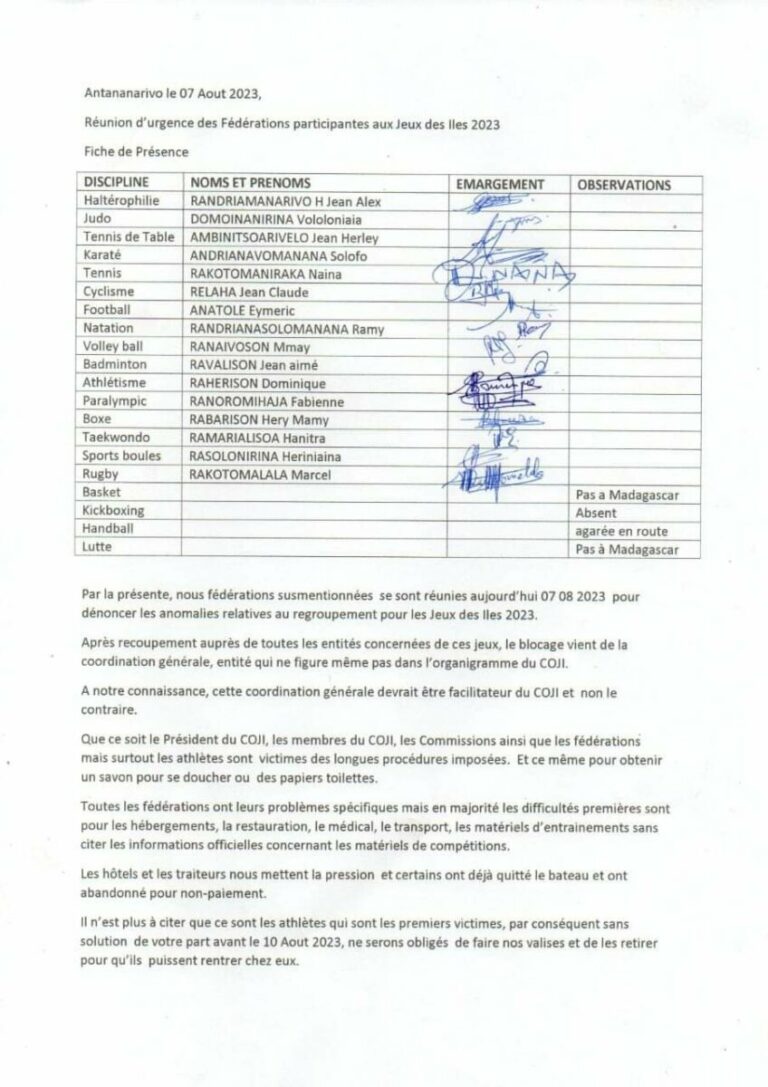 Antananarivo le 07 Aout 2023,
Réunion d'urgence des Fédérations participantes aux Jeux des Iles 2023
Fiche de Présence
DISCIPLINE NOMS ET PRENOMS EMARGEMENT OBSERVATIONS
Haltérophilie RANDRIAMANARIVO H Jean Alex
Judo DOMOINANIRINA Vololoniaia
Tennis de Table AMBINITSOARIVELO Jean Herley
Karaté ANDRIANAVOMANANA Solofo
Tennis RAKOTOMANIRAKA Naina NANA
Cyclisme RELAHA Jean Claude
Football ANATOLE Eymeric
Natation RANDRIANASOLOMANANA Ramy
Volley ball RANAIVOSON Mmay
Badminton RAVALISON Jean aimé
Athlétisme RAHERISON Dominique
Paralympic RANOROMIHAJA Fabienne
Boxe RABARISON Hery Mamy
Taekwondo RAMARIALISOA Hanitra
Sports boules RASOLONIRINA Heriniaina
Rugby RAKOTOMALALA Marcel
Basket Pas a Madagascar
Kickboxing Absent
Handball agarée en route
Lutte Pas à Madagascar
Par la présente, nous fédérations susmentionnées se sont réunies aujourd'hui 07 08 2023 pour
dénoncer les anomalies relatives au regroupement pour les Jeux des Iles 2023.
Après recoupement auprès de toutes les entités concernées de ces jeux, le blocage vient de la
coordination générale, entité qui ne figure même pas dans l'organigramme du COJI.
A notre connaissance, cette coordination générale devrait être facilitateur du COJI et non le
contraire.
Que ce soit le Président du COJI, les membres du COJI, les Commissions ainsi que les fédérations
mais surtout les athlètes sont victimes des longues procédures imposées. Et ce même pour obtenir
un savon pour se doucher ou des papiers toilettes.
Toutes les fédérations ont leurs problèmes spécifiques mais en majorité les difficultés premières sont
pour les hébergements, la restauration, le médical, le transport, les matériels d'entrainements sans
citer les informations officielles concernant les matériels de compétitions.
Les hôtels et les traiteurs nous mettent la pression et certains ont déjà quitté le bateau et ont
abandonné pour non-paiement.
Il n'est plus à citer que ce sont les athlètes qui sont les premiers victimes, par conséquent sans
solution de votre part avant le 10 Aout 2023, ne serons obligés de faire nos valises et de les retirer
pour qu'ils puissent rentrer chez eux.